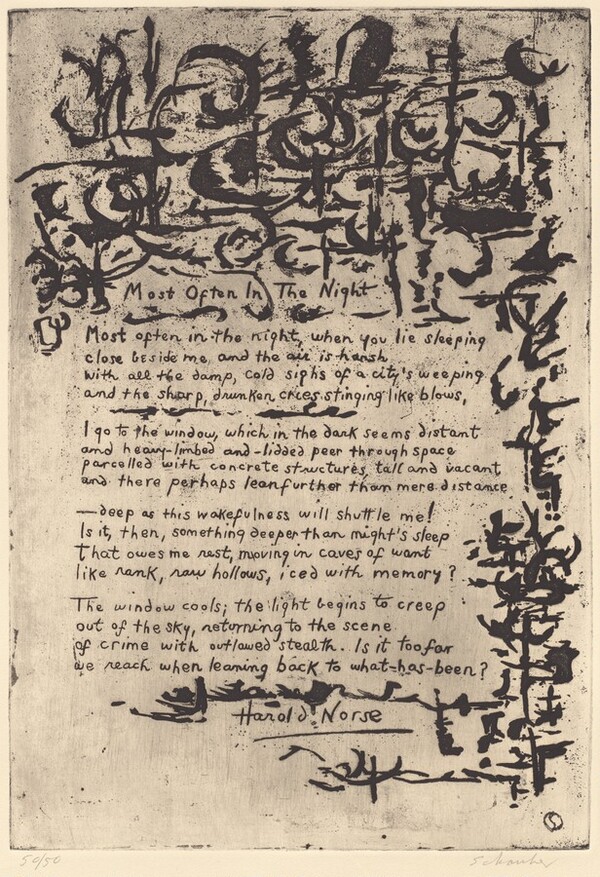 Most Often In The Night
Most often in the night, when you lie sleeping
close beside me, and the air is harsh
with all the damp, cold sighs of a city's weeping
and the sharp, drunken cries stinging like blows,
I go to the window, which in the dark seems distant
and heavy-limbed and -lidded peer through space
parcelled with concrete structures, tall and vacant
and there perhaps lean further than mere distance
—deep as this wakefulness will shuttle me!
Is it, then, something deeper than night's sleep
that owes me rest, moving in caves of want
like rank, raw hollows, iced with memory?
The window cools; the light begins to creep
out of the sky, returning to the scene
of crime with outlawed stealth. Is it too far
we reach when leaning back to what-has-been?
Harold Norse
50/50